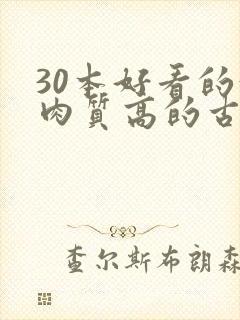 30本好看的
肉质高的古
查尔斯布朗森